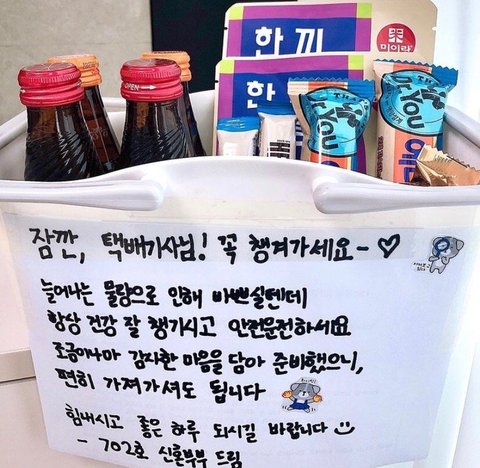 OPEN
한 끼
미이랑
한
Dr.You
Dr.You
에너
잠깐, 택배기사님! 꼭 챙겨가세요~♡
늘어나는 물량으로 인해 바쁘실텐데
항상 건강 잘 챙기시고 안전운전하세요
조금이나마 감사한 마음을 담아 준비했으니,
편히 가져가셔도 됩니다
힘내시고 좋은 하루 되시길 바랍니다 ☺
- 702호 신혼부부 드림